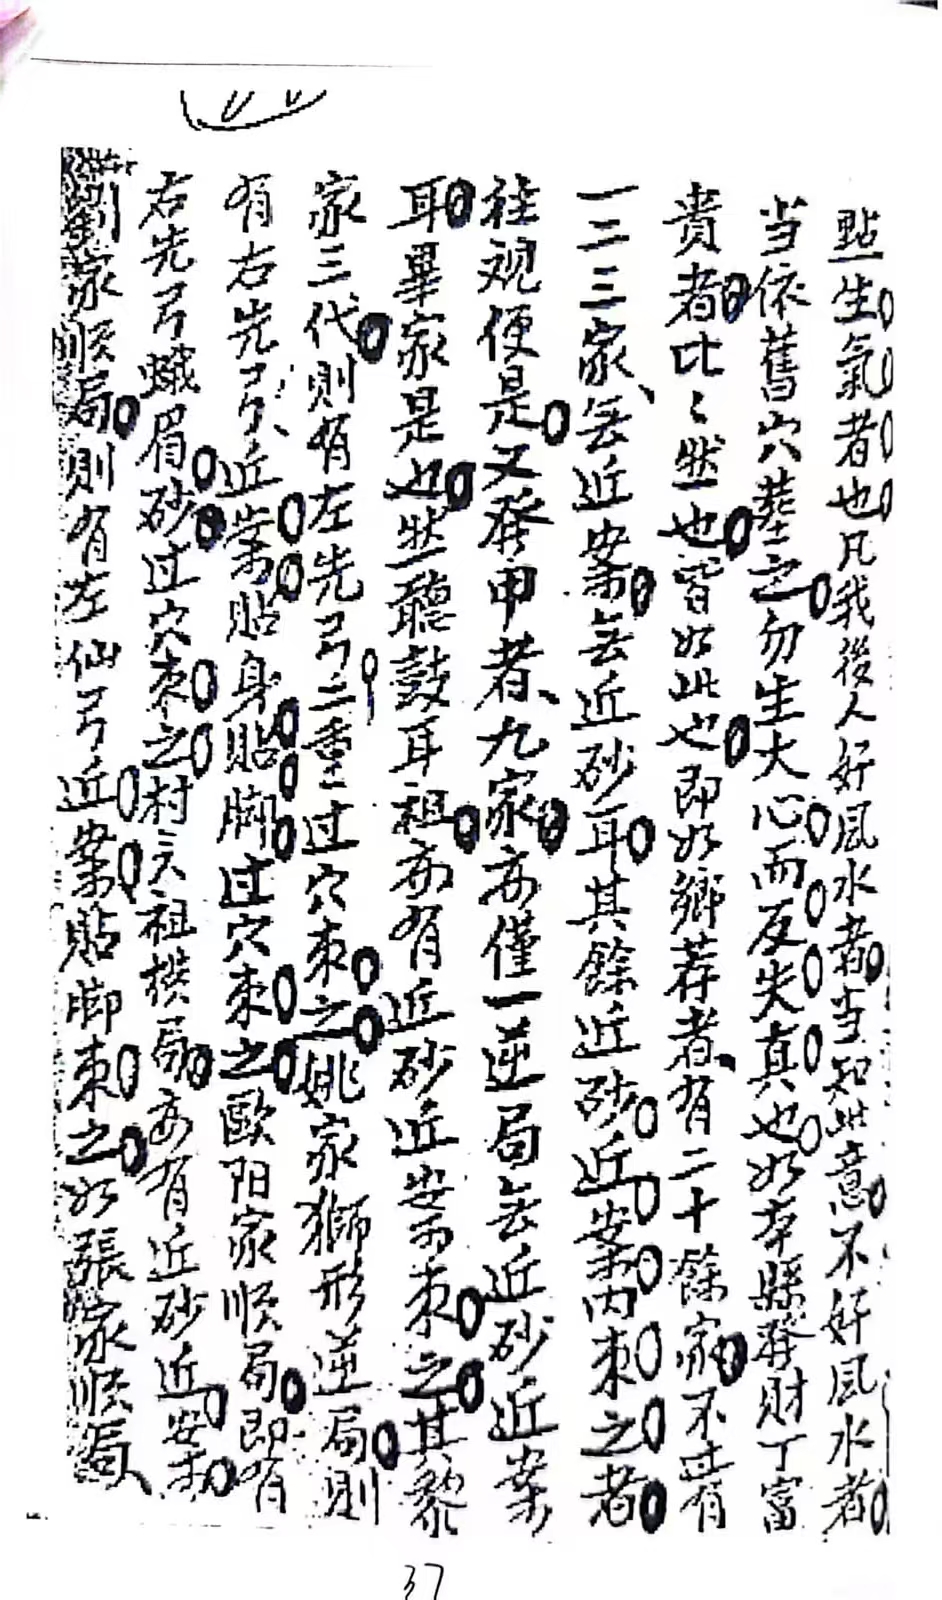 點生氣者也凡我後人好風水者当知此意不好風水者
当依舊穴塟之勿生大心而反失真也如本縣發財丁富
貴者比〻然也皆如此也即如鄉荐者有二十餘家不过有
一二三家無近案無近砂耳其餘近砂近案内朿之者
往视便是又發甲者九家亦僅一逆局無近砂近案
耳畢家是也然聽鼓耳祖亦有近砂近案朿之其黎
家三代則有左先弓二重二过穴朿之姚家獅形逆局則
有右先弓近案貼身貼脚过穴朿之歐阳家顺局即有
右先弓蛾眉砂过穴朿之村头祖横局亦有近砂近案
劉家顺局則有左仙弓近案貼脚朿之如張家顺局
37